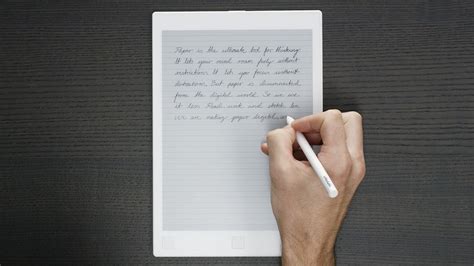 Paper is the ultimate tool for thinking.
It lets your mind roam fully without
instructions. It lets you focus without
distractions. But paper is disconnected
from the digital world. So we
it too. Read, write and sketch
we are making paper digital